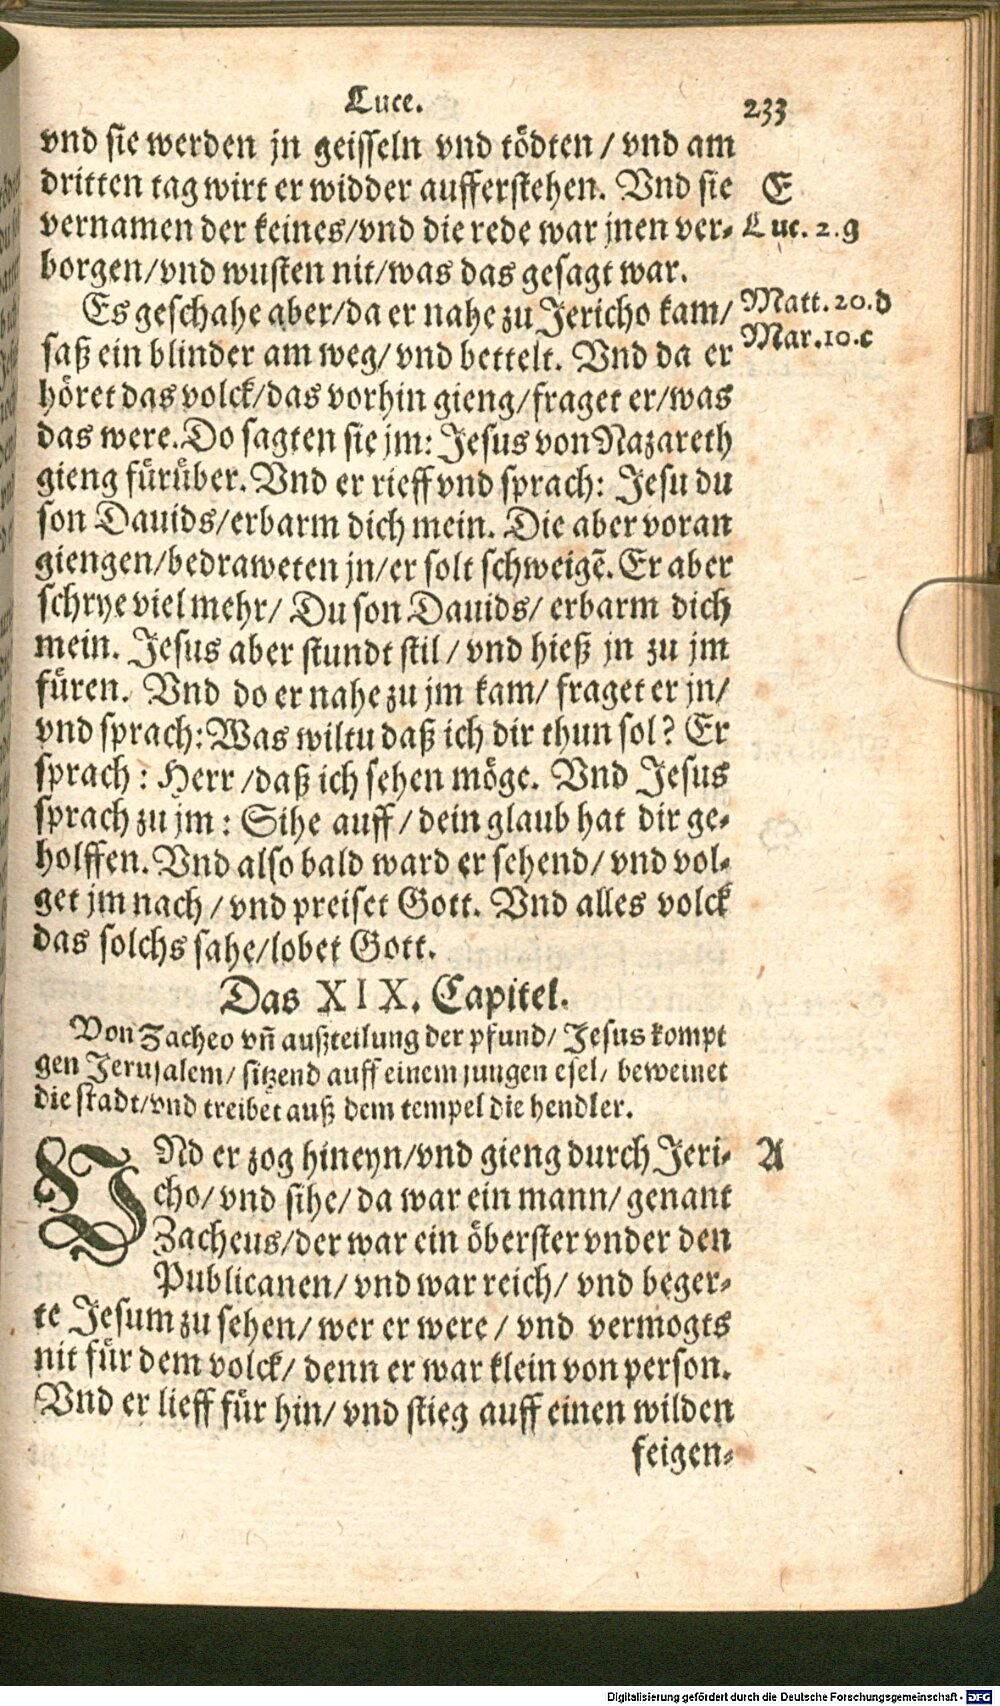 Luce.
233
vnd sie werden jn geisseln vnd tödten / vnd am
dritten tag wirt er widder aufferstehen. Vnd sie
E
vernamen der keines/vnd die rede war jnen ver-
Luc. 2. g
borgen/vnd wusten nit/was das gesagt war.
Es geschahe aber/da er nahe zu Jericho kam/
Matt. 20. d
Mar. 10. c
saß ein blinder am weg/ vnd bettelt. Vnd da er
höret das volck/das vorhin gieng/fraget er/was
das were. Do sagten sie jm: Jesus von Nazareth
gieng fürüber. Vnd er rieff vnd sprach: Jesu du
son Dauids/erbarm dich mein. Die aber voran
giengen/bedraweten jn/er solt schweigẽ. Er aber
schrye viel mehr/ Du son Dauids/ erbarm dich
mein. Jesus aber stundt stil / vnd hieß jn zu jm
füren. Vnd do er nahe zu jm kam/ fraget er jn/
vnd sprach: Was wiltu daß ich dir thun sol? Er
sprach : Herr /daß ich sehen möge. Vnd Jesus
sprach zu jm : Sihe auff / dein glaub hat dir ge-
holffen. Vnd also bald ward er sehend/ vnd vol-
get jm nach / vnd preiset Gott. Vnd alles volck
das solchs sahe/lobet Gott.
Das XIX. Capitel.
Von Zacheo vñ außteilung der pfund/ Jesus kompt
gen Jerusalem/ sitzend auff einem jungen esel/ beweinet
die stadt/vnd treibet auß dem tempel die hendler.
VNd er zog hineyn/vnd gieng durch Jeri-
A
cho/ vnd sihe/ da war ein mann/ genant
Zacheus/der war ein öberster vnder den
Publicanen/ vnd war reich/ vnd beger-
te Jesum zu sehen/ wer er were / vnd vermogts
nit für dem volck/ denn er war klein von person.
Vnd er lieff für hin/ vnd stieg auff einen wilden
feigen-
Digitalisierung gefördert durch die Deutsche Forschungsgemeinschaft - DFG